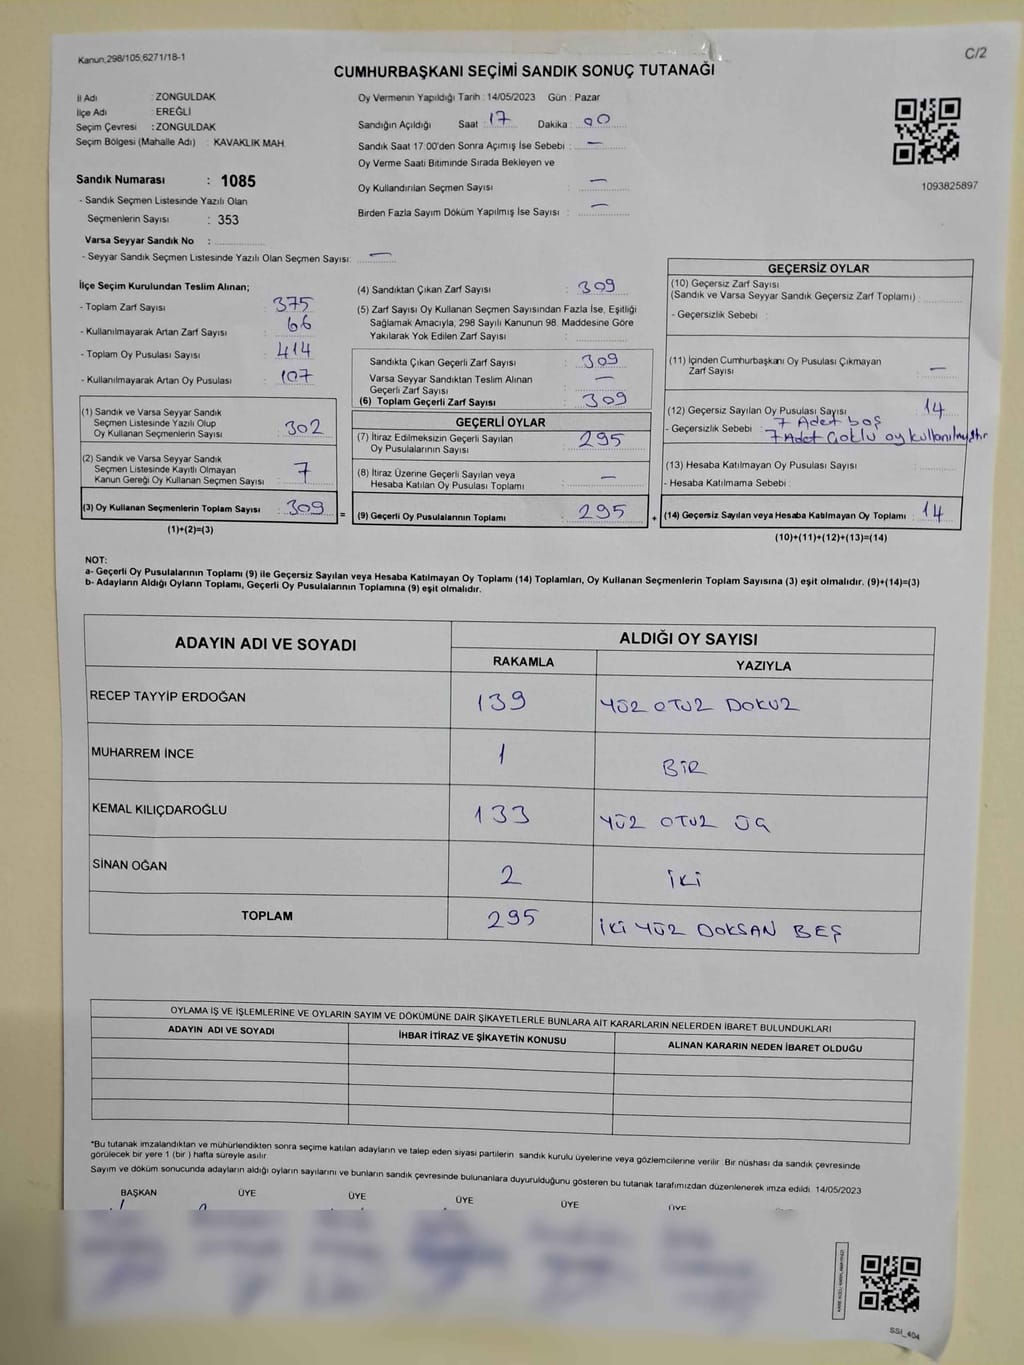 Kanun,298/105,6271/18-1
C/2
CUMHURBAŞKANI SEÇİMİ SANDIK SONUÇ TUTANAĞI
İl Adı : ZONGULDAK
İlçe Adı : EREĞLİ
Seçim Çevresi : ZONGULDAK
Seçim Bölgesi (Mahalle Adı) : KAVAKLIK MAH.
Sandık Numarası : 1085
- Sandık Seçmen Listesinde Yazılı Olan
Seçmenlerin Sayısı : 353
Varsa Seyyar Sandık No :
- Seyyar Sandık Seçmen Listesinde Yazılı Olan Seçmen Sayısı: —
Oy Vermenin Yapıldığı Tarih : 14/05/2023 Gün : Pazar
Sandığın Açıldığı Saat : 17 Dakika : 00
Sandık Saat 17:00'den Sonra Açımış İse Sebebi : —
Oy Verme Saati Bitiminde Sırada Bekleyen ve
Oy Kullandırılan Seçmen Sayısı : —
Birden Fazla Sayım Döküm Yapılmış İse Sayısı : —
1093825897
İlçe Seçim Kurulundan Teslim Alınan;
- Toplam Zarf Sayısı : 375
- Kullanılmayarak Artan Zarf Sayısı : 66
- Toplam Oy Pusulası Sayısı : 414
- Kullanılmayarak Artan Oy Pusulası : 107
(1) Sandık ve Varsa Seyyar Sandık
Seçmen Listesinde Yazılı Olup
Oy Kullanan Seçmenlerin Sayısı : 302
(2) Sandık ve Varsa Seyyar Sandık
Seçmen Listesinde Kayıtlı Olmayan
Kanun Gereği Oy Kullanan Seçmen Sayısı : 7
(3) Oy Kullanan Seçmenlerin Toplam Sayısı : 309 =
(1)+(2)=(3)
(4) Sandıktan Çıkan Zarf Sayısı : 309
(5) Zarf Sayısı Oy Kullanan Seçmen Sayısından Fazla İse, Eşitliği
Sağlamak Amacıyla, 298 Sayılı Kanunun 98. Maddesine Göre
Yakılarak Yok Edilen Zarf Sayısı :
Sandıkta Çıkan Geçerli Zarf Sayısı : 309
Varsa Seyyar Sandıktan Teslim Alınan
Geçerli Zarf Sayısı : —
(6) Toplam Geçerli Zarf Sayısı : 309
GEÇERLİ OYLAR
(7) İtiraz Edilmeksizin Geçerli Sayılan
Oy Pusulalarının Sayısı : 295
(8) İtiraz Üzerine Geçerli Sayılan veya
Hesaba Katılan Oy Pusulası Toplamı : —
(9) Geçerli Oy Pusulalarının Toplamı : 295 +
GEÇERSİZ OYLAR
(10) Geçersiz Zarf Sayısı
(Sandık ve Varsa Seyyar Sandık Geçersiz Zarf Toplamı) :
- Geçersizlik Sebebi :
(11) İçinden Cumhurbaşkanı Oy Pusulası Çıkmayan
Zarf Sayısı : —
(12) Geçersiz Sayılan Oy Pusulası Sayısı : 14
- Geçersizlik Sebebi : 7 Adet boş
7 Adet Çoklu oy kullanılmıştır
(13) Hesaba Katılmayan Oy Pusulası Sayısı :
- Hesaba Katılmama Sebebi :
(14) Geçersiz Sayılan veya Hesaba Katılmayan Oy Toplamı : 14
(10)+(11)+(12)+(13)=(14)
NOT:
a- Geçerli Oy Pusulalarının Toplamı (9) ile Geçersiz Sayılan veya Hesaba Katılmayan Oy Toplamı (14) Toplamları, Oy Kullanan Seçmenlerin Toplam Sayısına (3) eşit olmalıdır. (9)+(14)=(3)
b- Adayların Aldığı Oyların Toplamı, Geçerli Oy Pusulalarının Toplamına (9) eşit olmalıdır.
ADAYIN ADI VE SOYADI ALDIĞI OY SAYISI
RAKAMLA YAZIYLA
RECEP TAYYİP ERDOĞAN 139 YÜZ OTUZ DOKUZ
MUHARREM İNCE 1 BİR
KEMAL KILIÇDAROĞLU 133 YÜZ OTUZ ÜÇ
SİNAN OĞAN 2 İKİ
TOPLAM 295 İKİ YÜZ DOKSAN BEŞ
OYLAMA İŞ VE İŞLEMLERİNE VE OYLARIN SAYIM VE DÖKÜMÜNE DAİR ŞİKAYETLERLE BUNLARA AİT KARARLARIN NELERDEN İBARET BULUNDUKLARI
ADAYIN ADI VE SOYADI İHBAR İTİRAZ VE ŞİKAYETİN KONUSU ALINAN KARARIN NEDEN İBARET OLDUĞU
*Bu tutanak imzalandıktan ve mühürlendikten sonra seçime katılan adayların ve talep eden siyasi partilerin sandık kurulu üyelerine veya gözlemcilerine verilir. Bir nüshası da sandık çevresinde
görülecek bir yere 1 (bir ) hafta süreyle asılır
Sayım ve döküm sonucunda adayların aldığı oyların sayılarını ve bunların sandık çevresinde bulunanlara duyurulduğunu gösteren bu tutanak tarafımızdan düzenlenerek imza edildi. 14/05/2023
BAŞKAN ÜYE ÜYE ÜYE ÜYE ÜYE
SSI_404